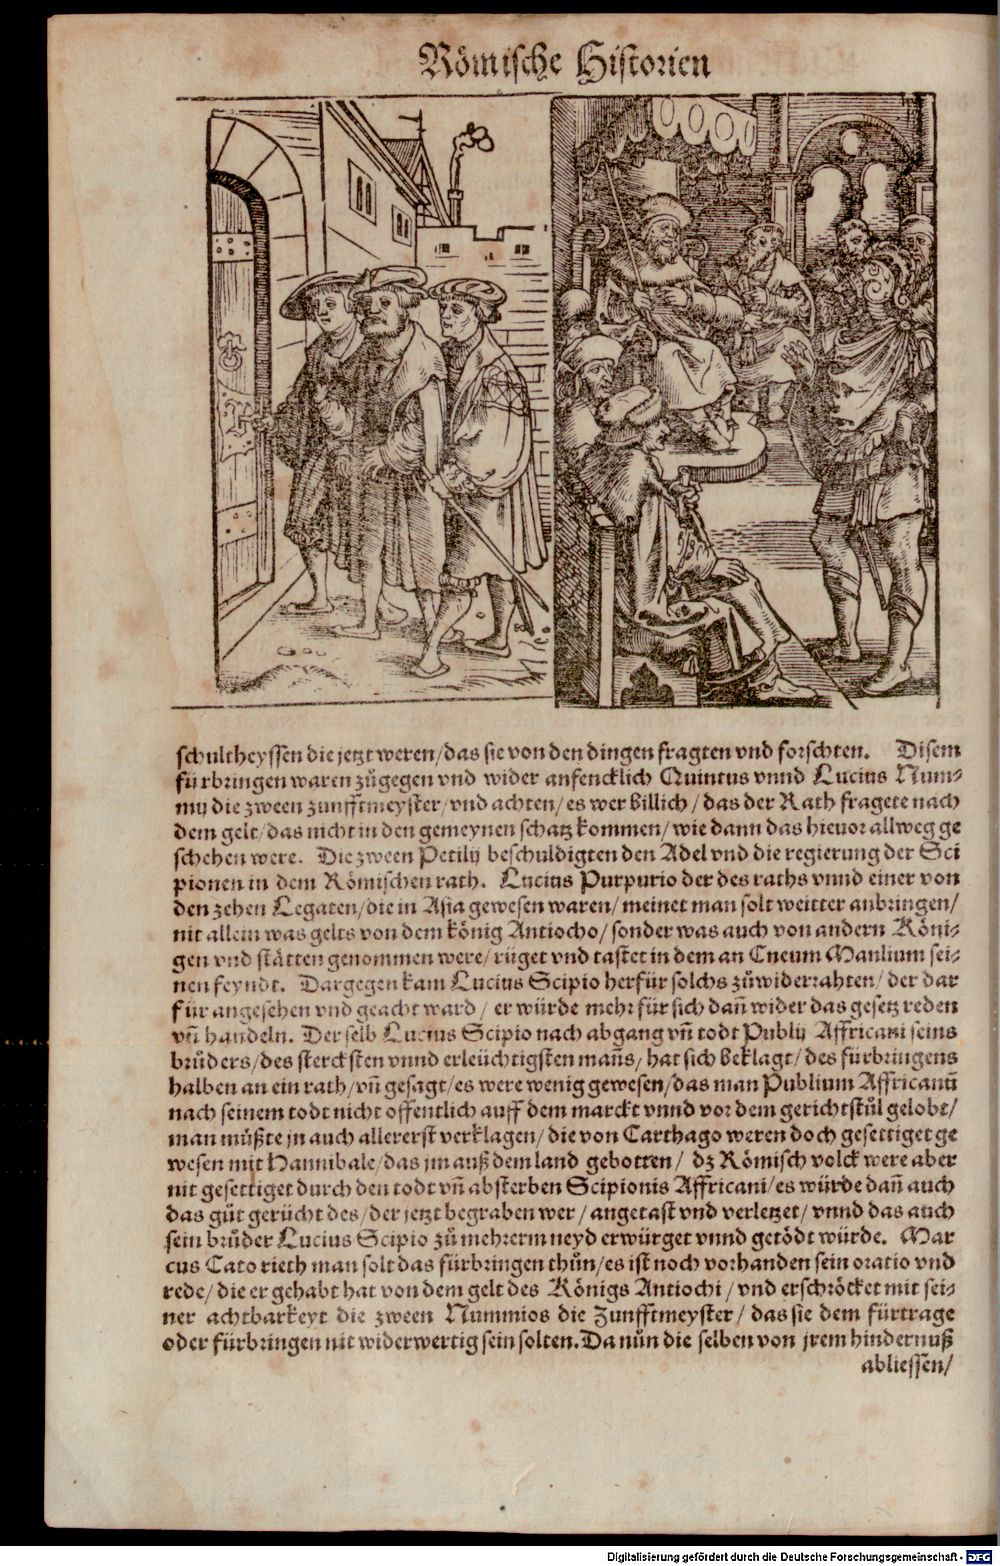 Römische Historien
schultheyssen die jetzt weren/das sie von den dingen fragten vnd forschten. Disem
fürbringen waren zůgegen vnd wider anfencklich Quintus vnnd Lucius Num⸗
mij die zween zunfftmeyster/vnd achten/es wer billich/das der Rath fragete nach
dem gelt/das nicht in den gemeynen schatz kommen/wie dann das hieuor allweg ge
schehen were. Die zween Petilij beschuldigten den Adel vnd die regierung der Sci
pionen in dem Römischen rath. Lucius Purpurio der des raths vnnd einer von
den zehen Legaten/die in Asia gewesen waren/meinet man solt weitter anbringen/
nit allein was gelts von dem könig Antiocho/sonder was auch von andern Köni⸗
gen vnd stätten genommen were/rüget vnd tastet in dem an Cneum Manlium sei⸗
nen feyndt. Dargegen kam Lucius Scipio herfür solchs zůwiderrahten/der dar
für angesehen vnd geacht ward/er würde mehr für sich dañ wider das gesetz reden
vñ handeln. Der selb Lucius Scipio nach abgang vñ todt Publij Affricani seins
brůders/des stercksten vnnd erleüchtigsten mañs/hat sich beklagt/des fürbringens
halben an ein rath/vñ gesagt/es were wenig gewesen/das man Publium Affricanū
nach seinem todt nicht offentlich auff dem marckt vnnd vor dem gerichtstůl gelobt/
man můßte jn auch allererst verklagen/die von Carthago weren doch gesettiget ge
wesen mit Hannibale/das jm auß dem land gebotten/dz Römisch volck were aber
nit gesettiget durch den todt vñ absterben Scipionis Affricani/es würde dañ auch
das gůt gerücht des/der jetzt begraben wer/angetast vnd verletzet/vnnd das auch
sein brůder Lucius Scipio zů mehrerm neyd erwürget vnnd getödt würde. Mar
cus Cato rieth man solt das fürbringen thůn/es ist noch vorhanden sein oratio vnd
rede/die er gehabt hat von dem gelt des Königs Antiochi/vnd erschröcket mit sei⸗
ner achtbarkeyt die zween Nummios die Zunfftmeyster/das sie dem fürtrage
oder fürbringen nit widerwertig sein solten. Da nůn die selben von jrem hindernuß
abliessen/
Digitalisierung gefördert durch die Deutsche Forschungsgemeinschaft - DFG